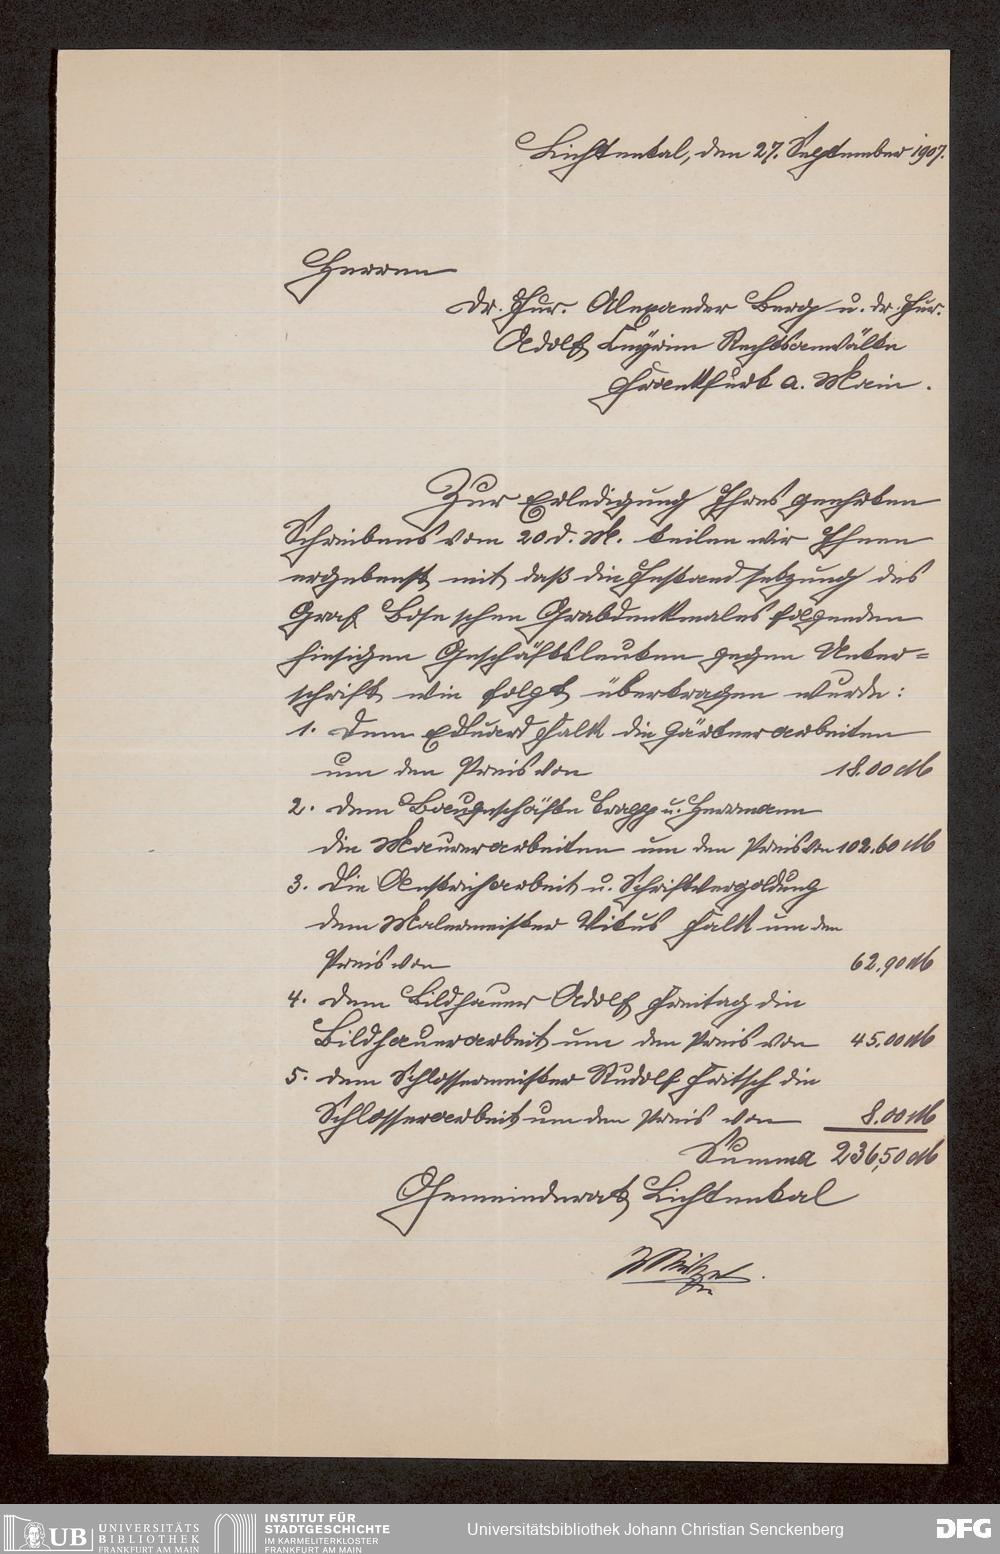 Lichtental, den 27. September 1907.
Herren
Dr. Jur. Alexander Berg u. Dr. Jur.
Adolf Rechtsanwälte
Frankfurt a. Main.
Zur Erledigung Ihres geehrten
Schreibens vom 20. d. M. teilen wir Ihnen
ergebenst mit, daß die Instandsetzung des
Graf Bose schen Grabdenkmales folgenden
hiesigen Geschäftsleuten gegen Unter=
schrift wie folgt übertragen wurde:
1. Dem Eduard Falk die Gärtnerarbeiten
um den Preis von 18.00 M
2. dem Baugeschäfte u. Herrmann
die Maurerarbeiten um den Preis von 102.60 M
3. Die Anstricharbeit u. Schriftvergoldung
dem Malermeister Vitus Falk um den
Preis von 62.90 M
4. dem Bildhauer Adolf Freitag die
Bildhauerarbeit um den Preis von 45.00 M
5. dem Schlossermeister Rudolf Fritsch die
Schlosserarbeit um den Preis von 8.00 M
Summa 236,50 M
Gemeinderat Lichtental
UB UNIVERSITÄTS
BIBLIOTHEK
FRANKFURT AM MAIN
INSTITUT FÜR
STADTGESCHICHTE
IM KARMELITERKLOSTER
FRANKFURT AM MAIN
Universitätsbibliothek Johann Christian Senckenberg
DFG